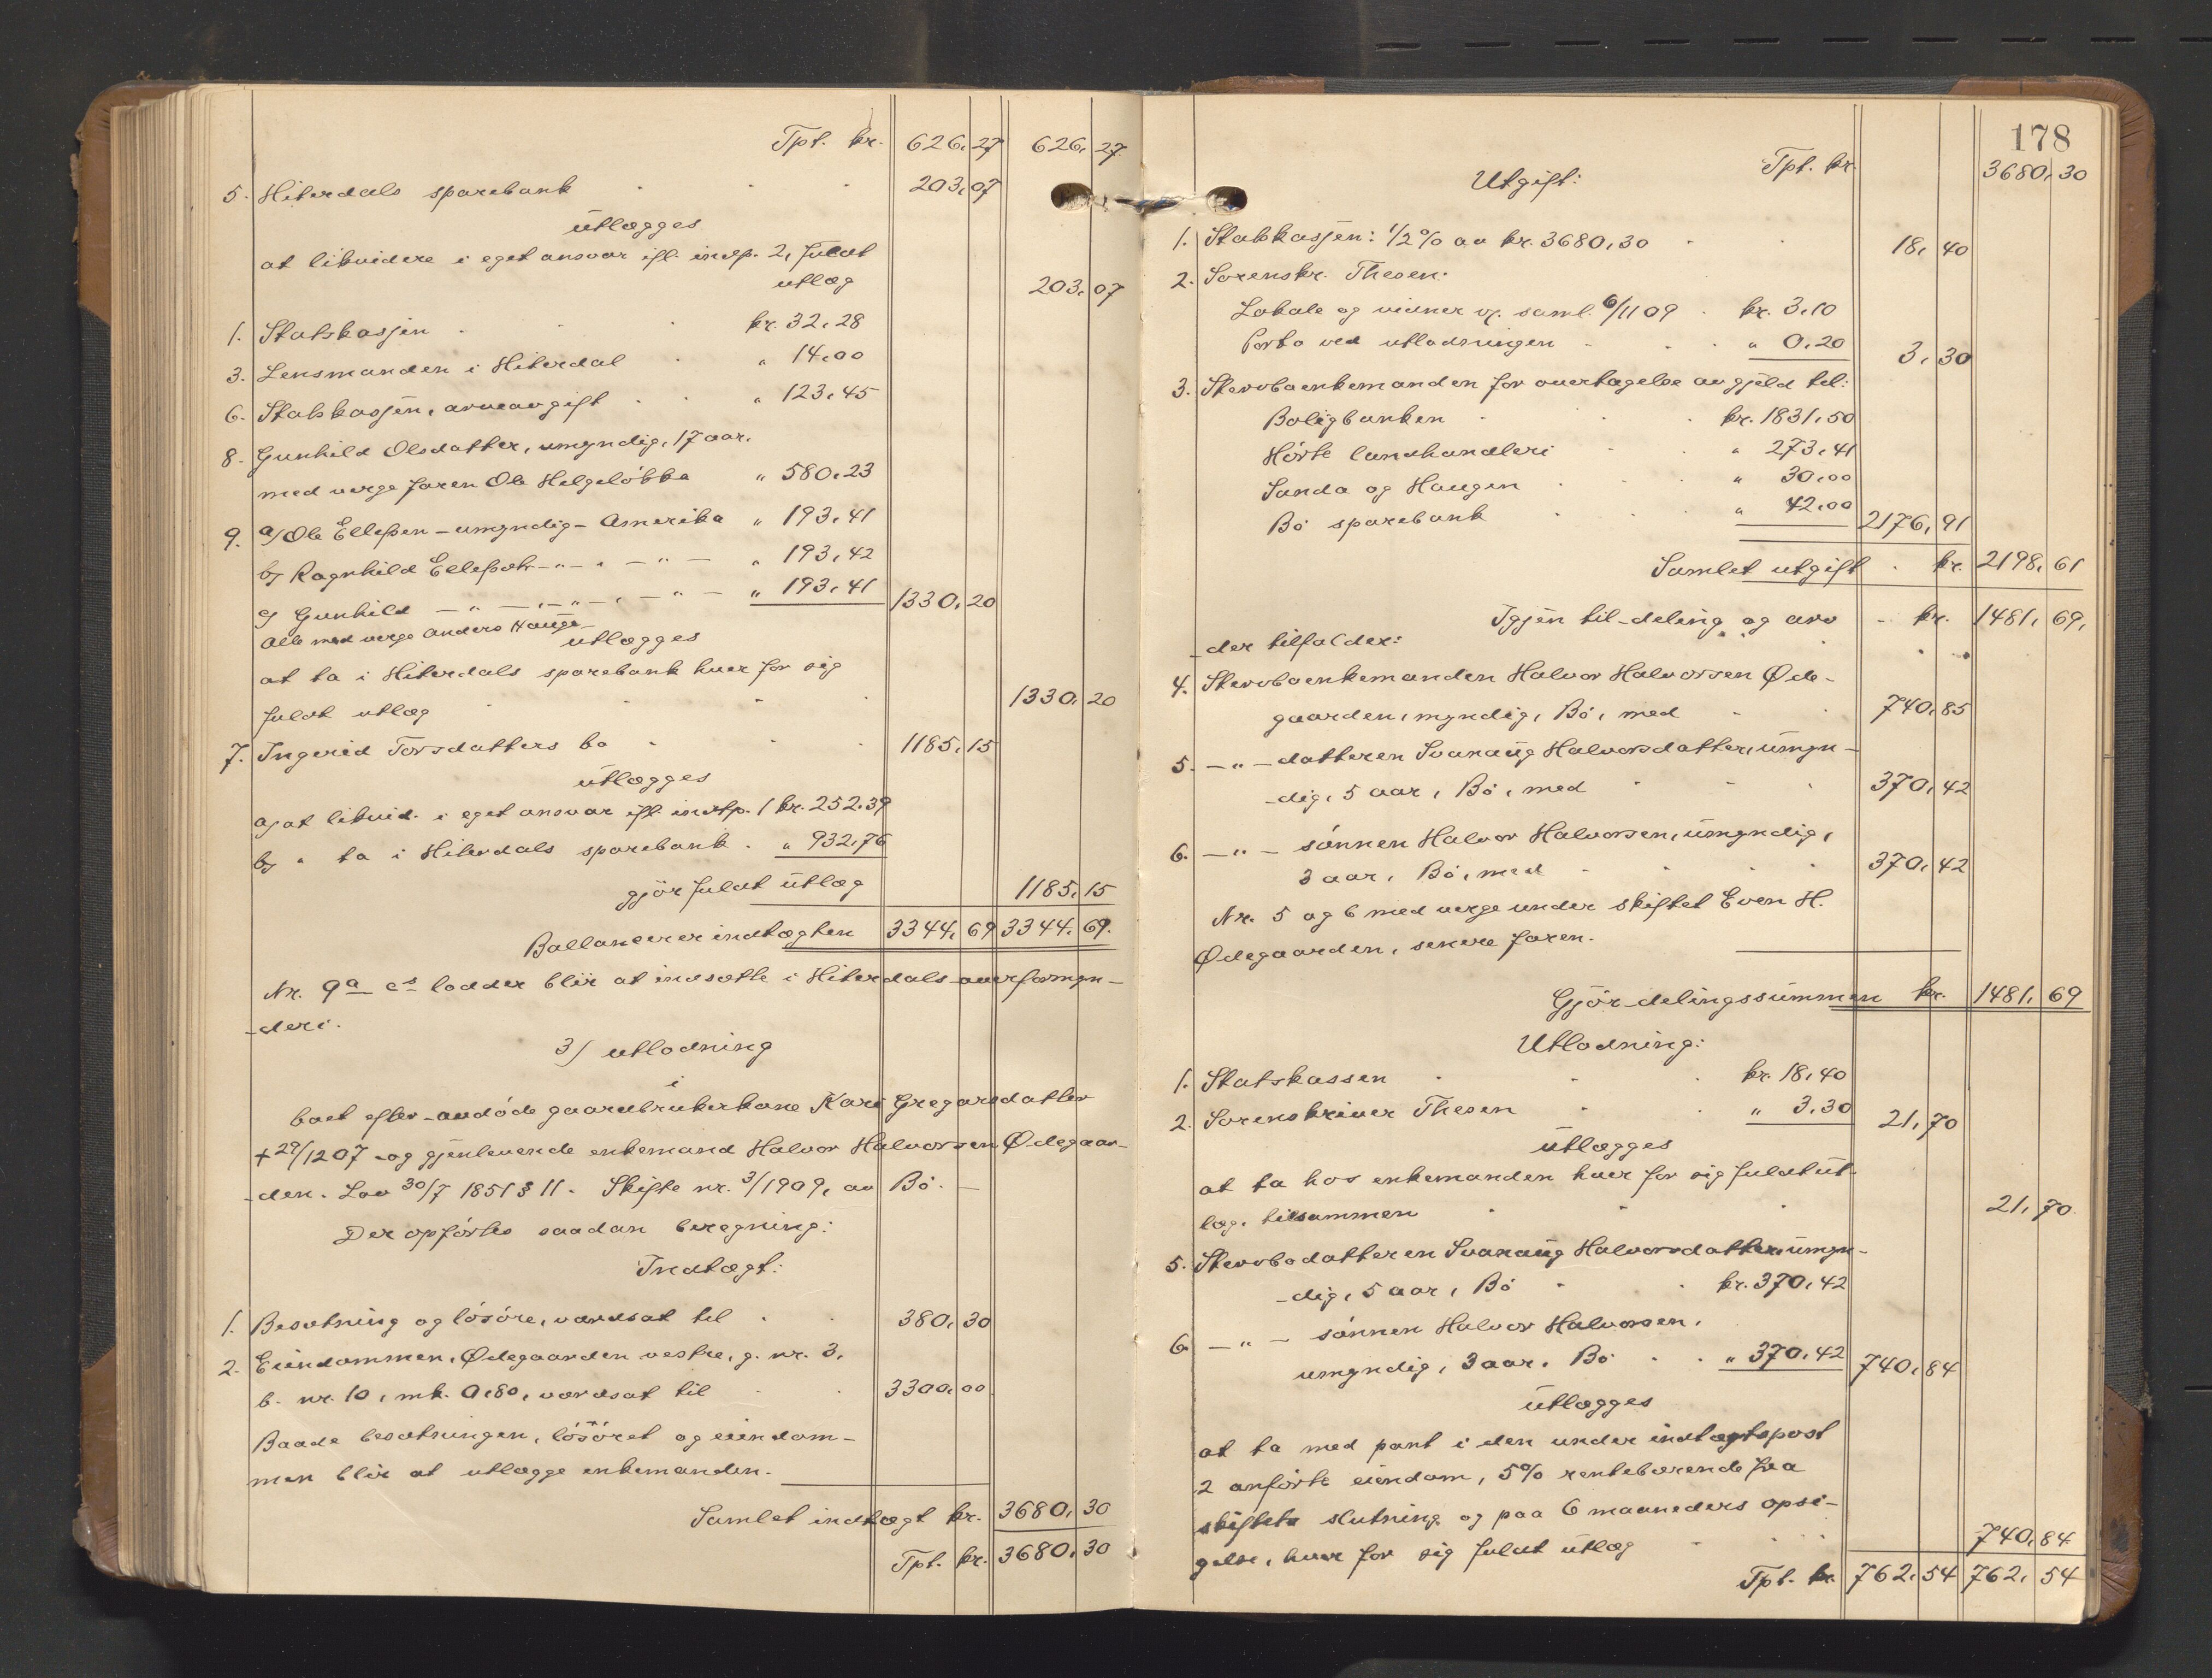 Tpt. kr. 626,27 626,27.
5. Hiterdals sparebank 203,07
utlægges
at likvidere i eget ansvar ifl. indtp. 2, fuldt
utlæg 203,07
1. Statskassen kr. 32,28
3. Lensmanden i Hiterdal " 14,00
6. Statskassen, arveavgift " 123,45
8. Gunhild Olsdatter, umyndig, 17 aar,
med verge faren Ole Helgeløkka " 580,23
9. a) Ole Ellefsen - umyndig - Amerika " 193,41
b) Ragnhild Ellefsdtr - " - " - " - " 193,42
c) Gunhild - " - " - " - " - " 193,41 1330,20
Alle med verge Anders Hauge
utlægges
at ta i Hiterdals sparebank hver for sig
fuldt utlæg 1330,20
7. Ingerid Torsdatters bo 1185,15
utlægges
a) at likvid. i eget ansvar ifl. indtp. 1 kr. 252,39
b) " ta i Hiterdals sparebank " 932,76
gjør fuldt utlæg 1185,15
Ballancerer indtægten 3344,69 3344,69.
Nr. 9a - cs lodder blir at indsætte i Hiterdals overformyn-
deri.
3) utlodning
i
boet efter avdøde gaardbrukerkone Kari Gregarsdatter
+ 29/12 07 og gjenlevende enkemand Halvor Halvorsen Ødegaar-
den. Lov 30/7 1851 § 11. Skifte nr. 3/1909, av Bø. -
Der opførtes saadan beregning:
Indtægt:
1. Besætning og løsøre, værdsat til 380,30
2. Eiendommen, Ødegaarden vestre, g. nr. 3,
b. nr. 10, mk. 0,80, værdsat til 3300,00
Baade besætningen, løsøret og eiendom-
men blir at utlægge enkemanden.
Samlet indtægt kr. 3680,30
Tpt. kr. 3680,30
178
Tpt. kr. 3680,30
Utgift:
1. Statskassen: 1/2% av kr. 3680,30 18,40
2. Sorenskr. Thesen:
Lokale og vidner v. saml. 6/11 09 kr. 3,10
Porto ved utlodningen " 0,20 3,30
3. Stervboenkemanden for overtagelse av gjeld til:
Boligbanken kr. 1831,50
Hørte landhandleri " 273,41
Sanda og Haugen " 30,00
Bø sparebank " 42,00 2176,91
Samlet utgift kr. 2198,61
Igjen til deling og arv kr. 1481,69,
der tilfalder:
4. Stervboenkemanden Halvor Halvorsen Øde-
gaarden, myndig, Bø, med 740,85
5. - " - datteren Svanaug Halvorsdatter, umyn-
dig, 5 aar, Bø, med 370,42
6. - " - sønnen Halvor Halvorsen, umyndig,
3 aar, Bø, med 370,42
Nr. 5 og 6 med verge under skiftet Even H.
Ødegaarden, senere faren.
Gjør delingssummen kr. 1481,69
Utlodning:
1. Statskassen kr. 18,40
2. Sorenskriver Thesen " 3,30 21,70
utlægges
at ta hos enkemanden hver for sig fuldt ut-
læg, tilsammen 21,70.
5. Stervbodatteren Svanaug Halvorsdatter, umyn-
dig, 5 aar, Bø kr. 370,42
6. - " - sønnen Halvor Halvorsen,
umyndig, 3 aar, Bø " 370,42 740,84
utlægges
at ta med pant i den under indtægtspost
2 anførte eiendom, 5% rentebærende fra
skiftets slutning og paa 6 maaneders opsi-
gelse, hver for sig fuldt utlæg 740,84
Tpt. kr. 762,54 762,54